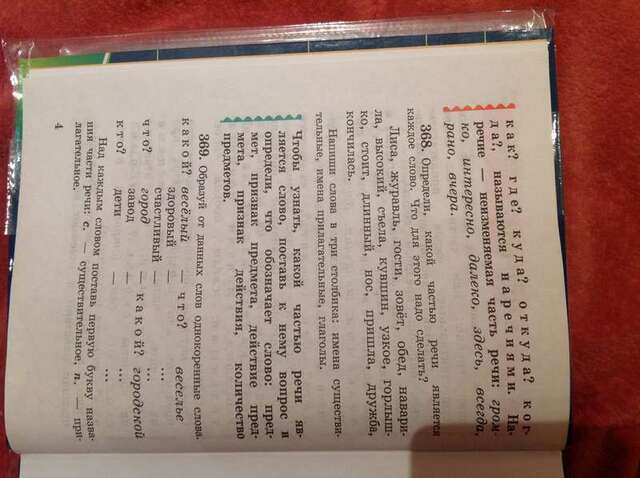 как? где? куда? откуда? ког-
да?, называются наречиями. На-
речие — неизменяемая часть речи: гром-
ко, интересно, далеко, здесь, всегда,
рано, вчера.
368. Определи, какой частью речи является
каждое слово. Что для этого надо сделать?
Лиса, журавль, гости, зовёт, обед, навари-
ла, высокий, съела, кувшин, узкое, горлыш-
ко, стоит, длинный, нос, пришла, дружба,
кончилась.
Напиши слова в три столбика: имена существи-
тельные, имена прилагательные, глаголы.
Чтобы узнать, какой частью речи яв-
ляется слово, поставь к нему вопрос и
определи, что обозначает слово: пред-
мет, признак предмета, действие пред-
мета, признак действия, количество
предметов.
369. Образуй от данных слов однокоренные слова.
какой? весёлый — что? веселье
здоровый — ...
счастливый — ...
что? город — какой? городской
завод — ...
кто? дети — ...
Над каждым словом поставь первую букву назва-
ния части речи: с. — существительное, п. — при-
лагательное.
4